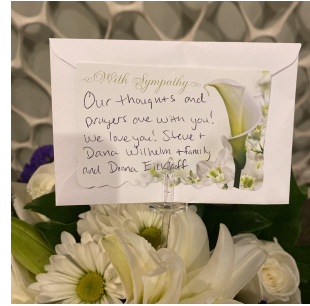 With Sympathy
Our thoughts and
prayers are with you!
We love you! Steve +
Dana Wilhelm + family
and Donna